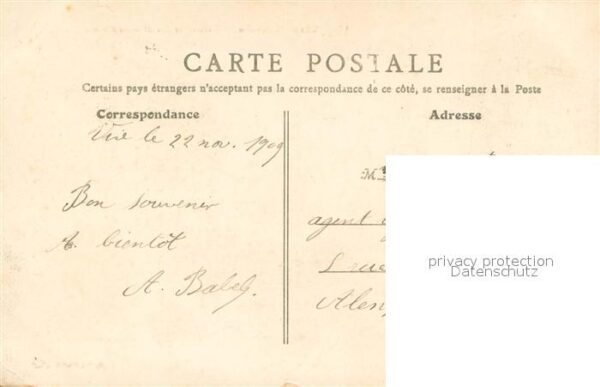 CARTE POSTALE
Certains pays étrangers n'acceptant pas la correspondance de ce côté, se renseigner à la Poste
Correspondance
Adresse
le 22 nov. 1909
Bon souvenir
A bientôt
A.
M
agent
rue
Alen
privacy protection
Datenschutz